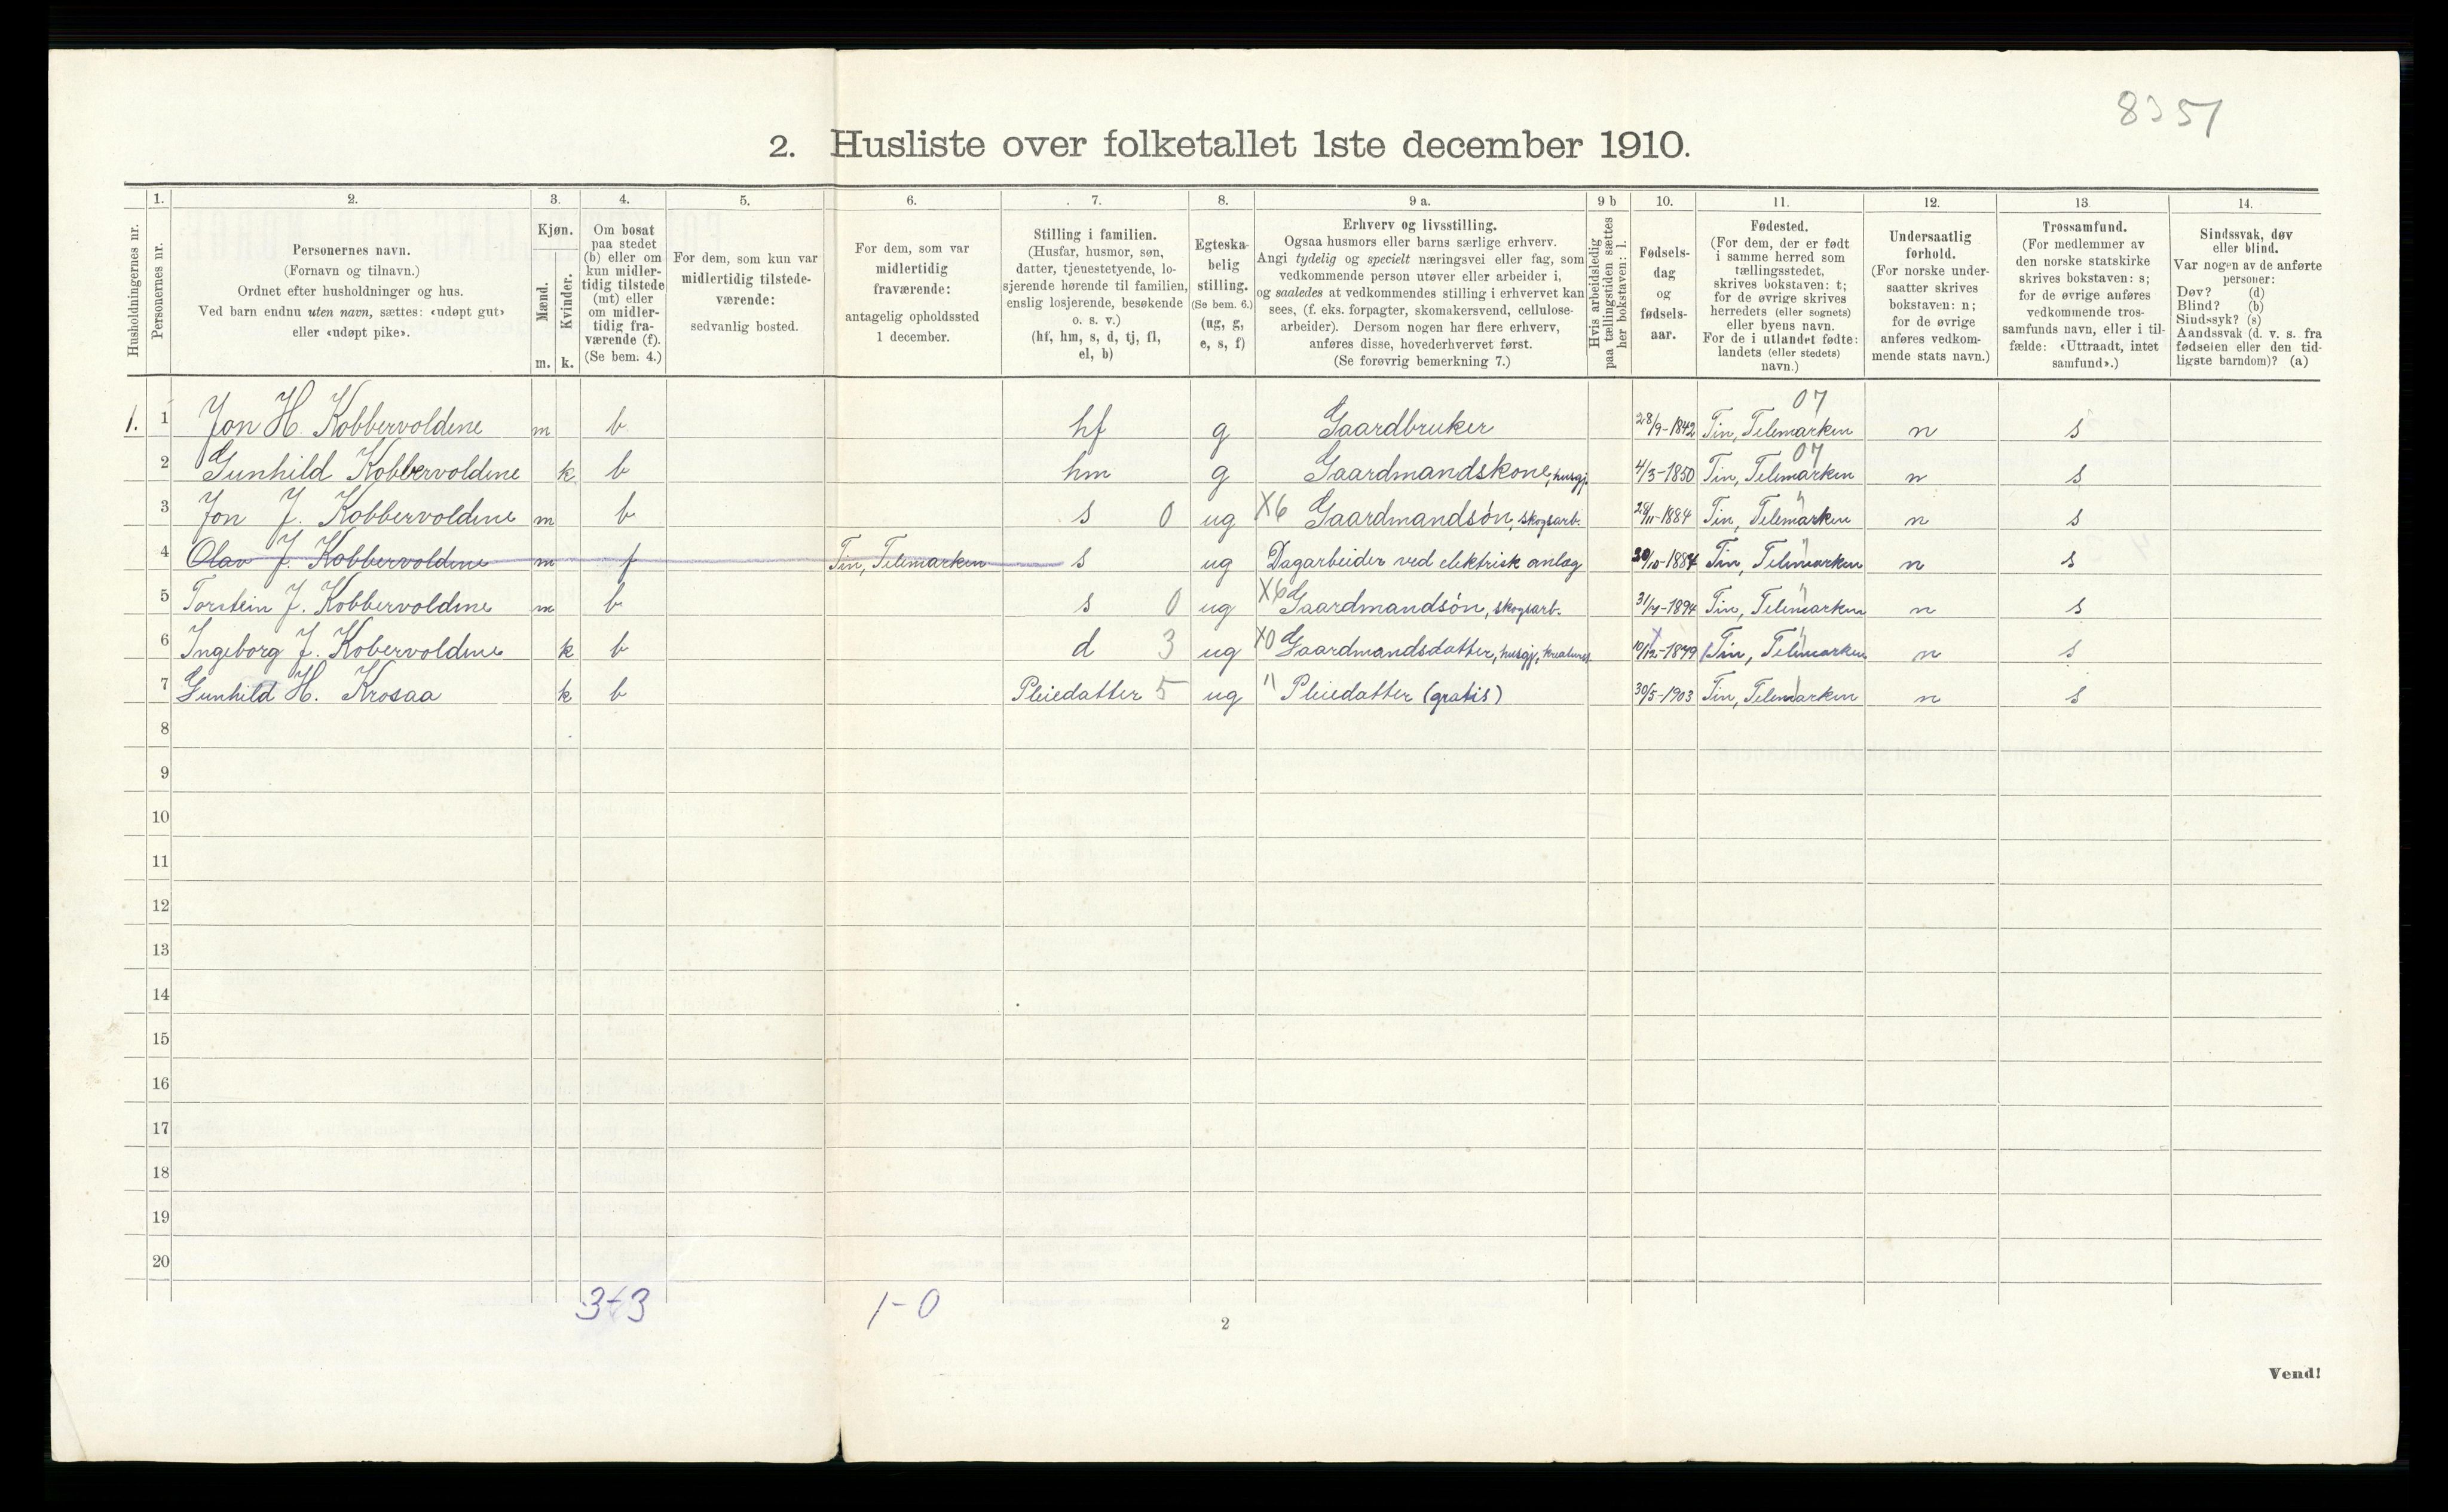 8351
2. Husliste over folketallet 1ste december 1910.
Husholdningernes nr.
1.
Personernes nr.
2.
Personernes navn.
(Fornavn og tilnavn.)
Ordnet efter husholdninger og hus.
Ved barn endnu uten navn, sættes: «udøpt gut»
eller «udøpt pike».
3.
Kjøn.
Mænd.
Kvinder.
m. k.
4.
Om bosat
paa stedet
(b) eller om
kun midler-
tidig tilstede
(mt) eller
om midler-
tidig fra-
værende (f).
(Se bem. 4.)
5.
For dem, som kun var
midlertidig tilstede-
værende:
sedvanlig bosted.
6.
For dem, som var
midlertidig
fraværende:
antagelig opholdssted
1 december.
7.
Stilling i familien.
(Husfar, husmor, søn,
datter, tjenestetyende, lo-
sjerende hørende til familien,
enslig losjerende, besøkende
o. s. v.)
(hf, hm, s, d, tj, fl,
el, b)
8.
Egteska-
belig
stilling.
(Se bem. 6.)
(ug, g,
e, s, f)
9 a.
Erhverv og livsstilling.
Ogsaa husmors eller barns særlige erhverv.
Angi tydelig og specielt næringsvei eller fag, som
vedkommende person utøver eller arbeider i,
og saaledes at vedkommendes stilling i erhvervet kan
sees, (f. eks. forpagter, skomakersvend, cellulose-
arbeider). Dersom nogen har flere erhverv,
anføres disse, hovederhvervet først.
(Se forøvrig bemerkning 7.)
9 b
Hvis arbeidsledig
paa tællingstiden sættes
her bokstaven: l.
10.
Fødsels-
dag
og
fødsels-
aar.
11.
Fødested.
(For dem, der er født
i samme herred som
tællingsstedet,
skrives bokstaven: t;
for de øvrige skrives
herredets (eller sognets)
eller byens navn.
For de i utlandet fødte:
landets (eller stedets)
navn.)
12.
Undersaatlig
forhold.
(For norske under-
saatter skrives
bokstaven: n;
for de øvrige
anføres vedkom-
mende stats navn.)
13.
Trossamfund.
(For medlemmer av
den norske statskirke
skrives bokstaven: s;
for de øvrige anføres
vedkommende tros-
samfunds navn, eller i til-
fælde: «Uttraadt, intet
samfund».)
14.
Sindssvak, døv
eller blind.
Var nogen av de anførte
personer:
Døv? (d)
Blind? (b)
Sindssyk? (s)
Aandssvak (d. v. s. fra
fødselen eller den tid-
ligste barndom)? (a)
07
1. 1 Jon H. Kobbervoldene m b hf g Gaardbruker 28/9-1842 Tin, Telemarken n s
07
2 Gunhild Kobbervoldene k b hm g Gaardmandskone, husgj. 4/3-1850 Tin, Telemarken n s
3 Jon J. Kobbervoldene m b s 0 ug X6 Gaardmandsøn, skogsarb. 28/11-1884 Tin, Telemarken n s
4 Olav J. Kobbervoldene m f Tin, Telemarken s ug Dagarbeider ved elektrisk anlæg 30/10-1887 Tin, Telemarken n s
5 Torstein J. Kobbervoldene m b s 0 ug X6 Gaardmandsøn, skogsarb. -1894 Tin, Telemarken n s
6 Ingeborg J. Kobervoldene k b d 3 ug X0 Gaardmandsdatter, husgj, kreaturst. 10/12-1879 Tin, Telemarken n s
7 Gunhild H. Krosaa k b Pleiedatter 5 ug " Pleiedatter (gratis) 30/5-1903 Tin, Telemarken n s
8
9
10
11
12
13
14
15
16
17
18
19
20
3+3 1-0
2
Vend!